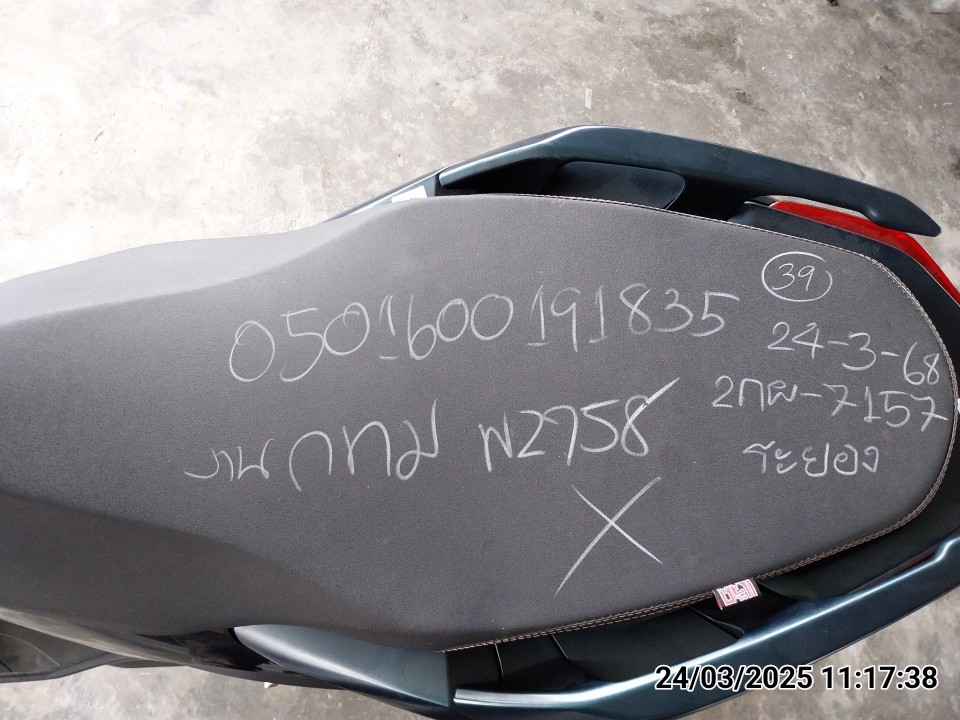 39
0501600191835
24-3-68
2กผ-7157
ระยอง
พ2758
X
24/03/2025 11:17:38